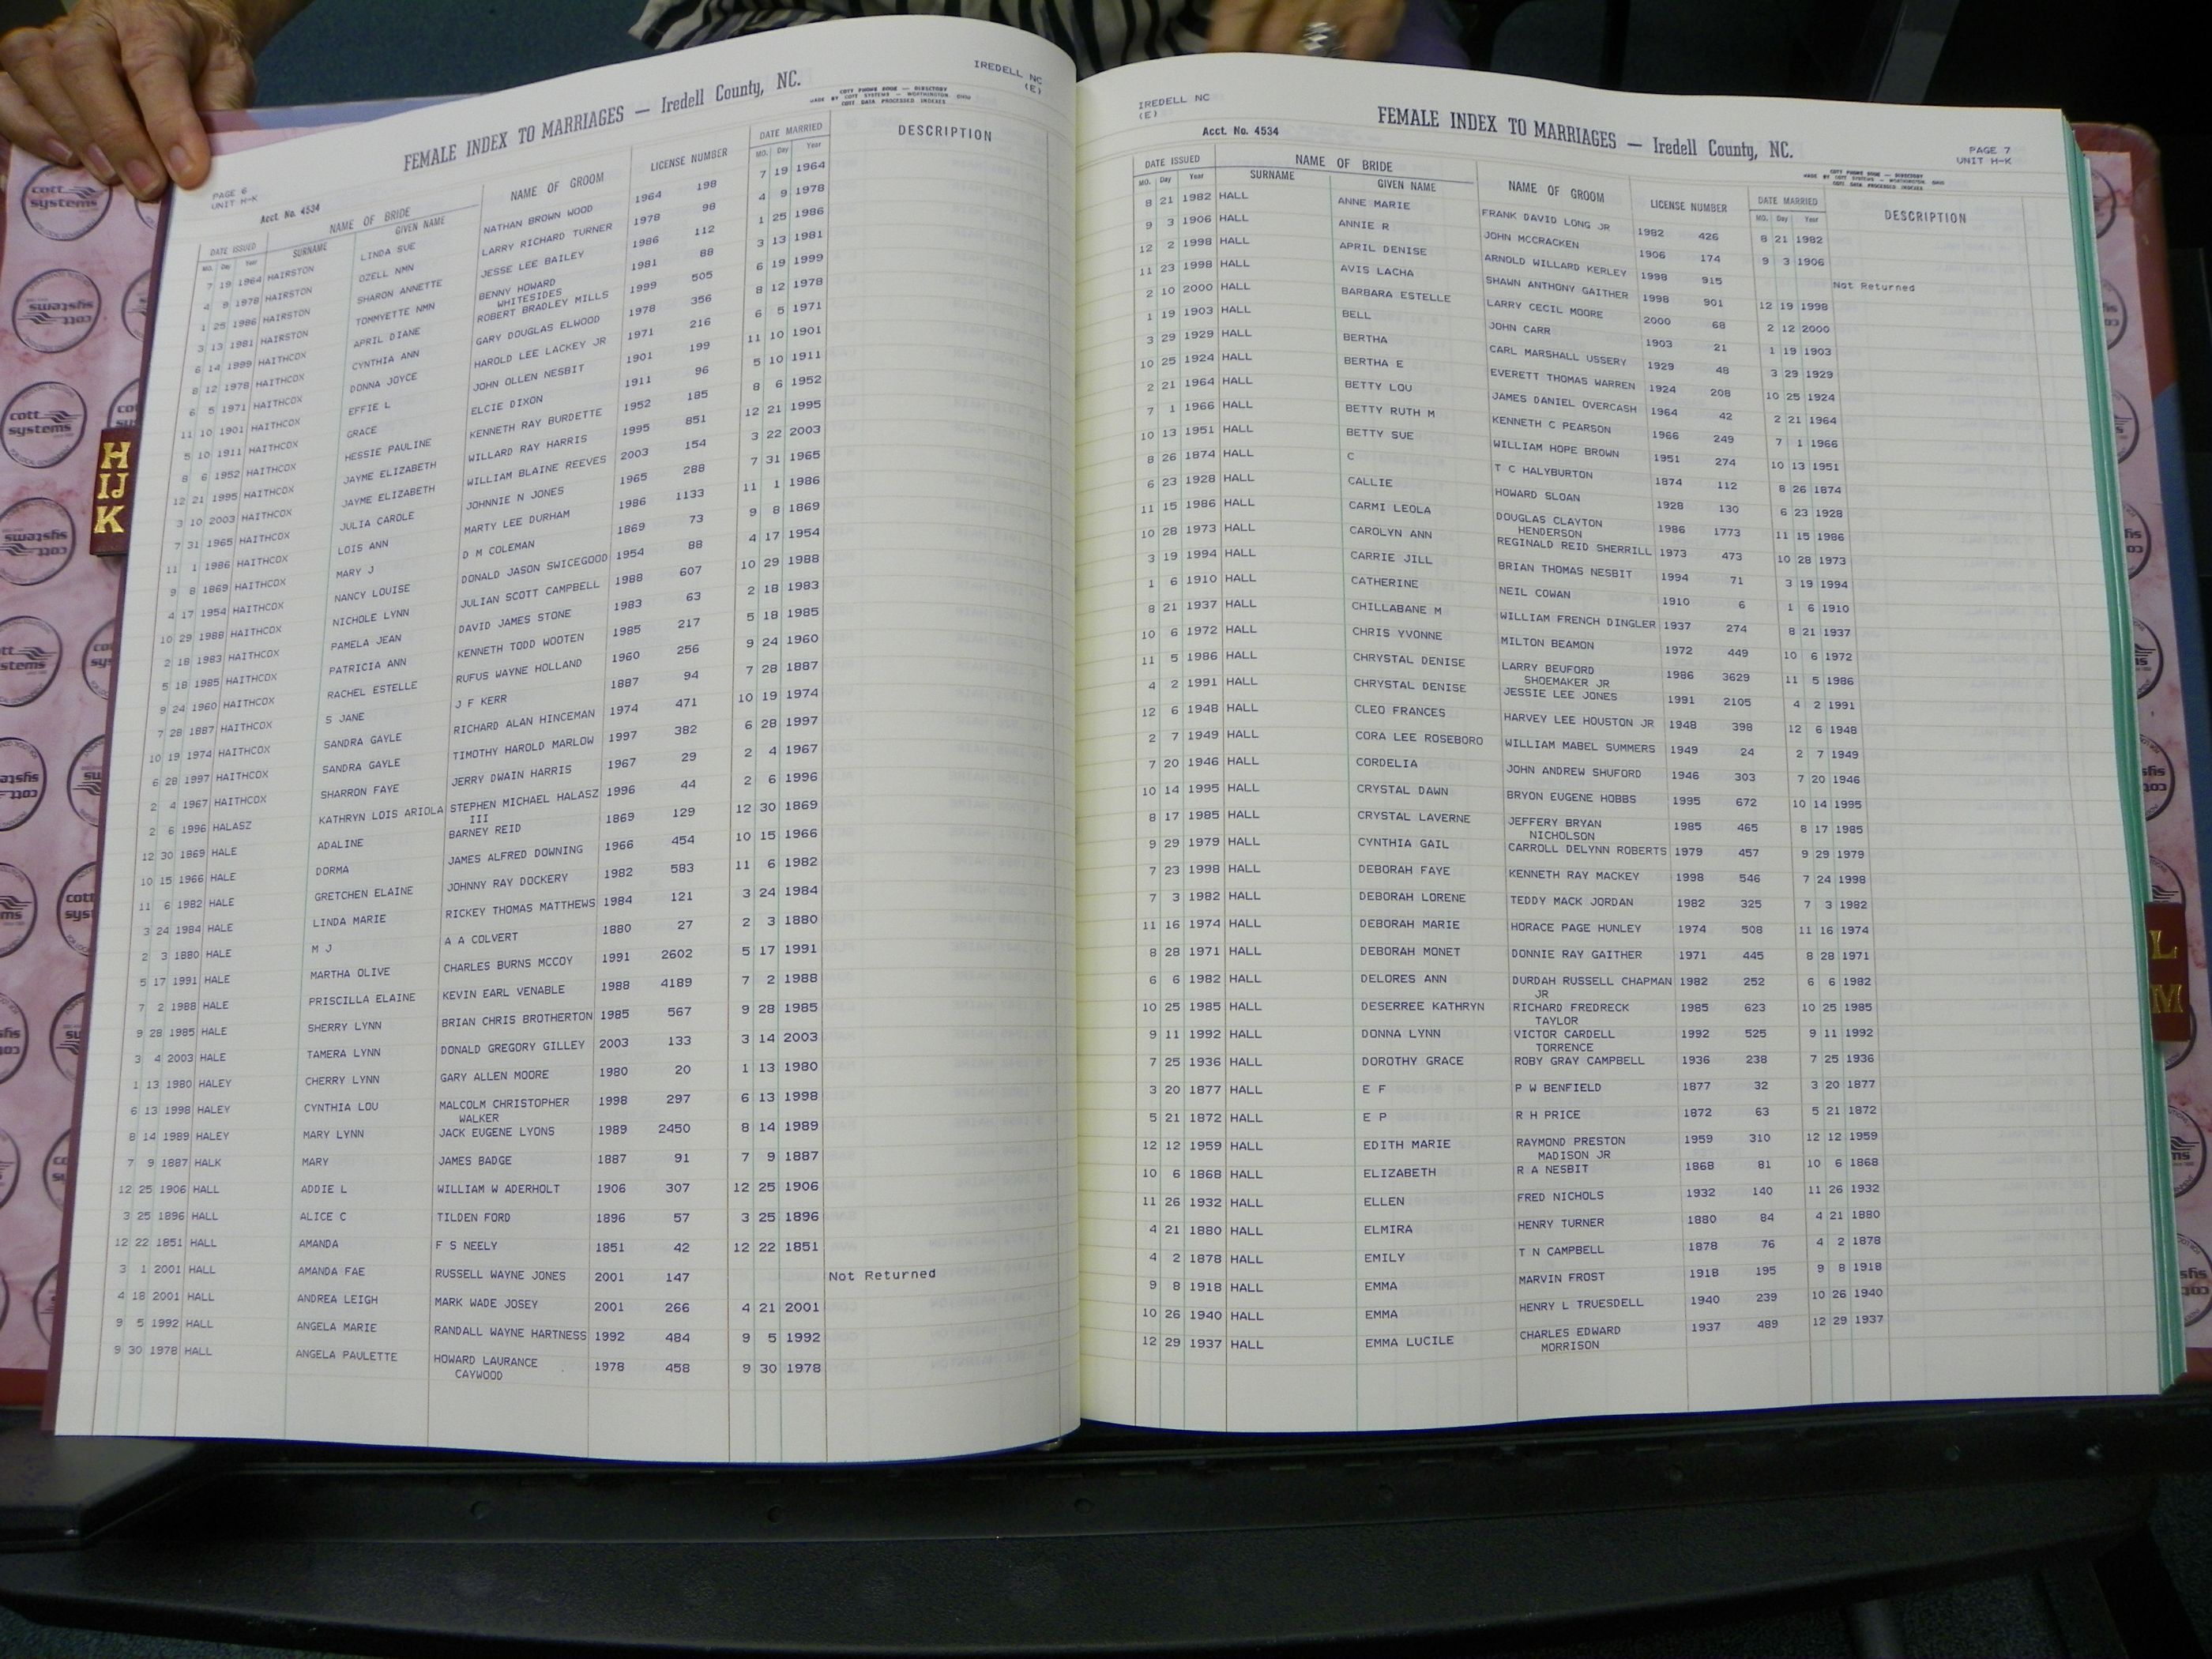 IREDELL NC
(E)
FEMALE INDEX TO MARRIAGES — Iredell County, NC.
COTT PHONE BOOK — DIRECTORY
MADE BY COTT SYSTEMS — WORTHINGTON OHIO
COTT DATA PROCESSED INDEXES
PAGE 6
UNIT H-K
Acct. No. 4534
DATE ISSUED NAME OF BRIDE NAME OF GROOM LICENSE NUMBER DATE MARRIED DESCRIPTION
MO. Day Year SURNAME GIVEN NAME MO. Day Year
7 19 1964 HAIRSTON LINDA SUE NATHAN BROWN WOOD 1964 198 7 19 1964
4 8 1978 HAIRSTON OZELL NMN LARRY RICHARD TURNER 1978 98 4 9 1978
1 25 1986 HAIRSTON SHARON ANNETTE JESSE LEE BAILEY 1986 112 1 25 1986
3 13 1981 HAIRSTON TOMMYETTE NMN BENNY HOWARD 1981 88 3 13 1981
WHITESIDES
6 14 1999 HAITHCOX APRIL DIANE ROBERT BRADLEY MILLS 1999 505 6 19 1999
8 12 1978 HAITHCOX CYNTHIA ANN GARY DOUGLAS ELWOOD 1978 356 8 12 1978
6 5 1971 HAITHCOX DONNA JOYCE HAROLD LEE LACKEY JR 1971 216 6 5 1971
11 10 1901 HAITHCOX EFFIE L JOHN OLLEN NESBIT 1901 199 11 10 1901
5 10 1911 HAITHCOX GRACE ELCIE DIXON 1911 96 5 10 1911
8 6 1952 HAITHCOX HESSIE PAULINE KENNETH RAY BURDETTE 1952 185 8 6 1952
12 21 1995 HAITHCOX JAYME ELIZABETH WILLARD RAY HARRIS 1995 851 12 21 1995
3 10 2003 HAITHCOX JAYME ELIZABETH WILLIAM BLAINE REEVES 2003 154 3 22 2003
7 31 1965 HAITHCOX JULIA CAROLE JOHNNIE N JONES 1965 288 7 31 1965
11 1 1986 HAITHCOX LOIS ANN MARTY LEE DURHAM 1986 1133 11 1 1986
9 8 1869 HAITHCOX MARY J D M COLEMAN 1869 73 9 8 1869
4 17 1954 HAITHCOX NANCY LOUISE DONALD JASON SWICEGOOD 1954 88 4 17 1954
10 29 1988 HAITHCOX NICHOLE LYNN JULIAN SCOTT CAMPBELL 1988 607 10 29 1988
2 18 1983 HAITHCOX PAMELA JEAN DAVID JAMES STONE 1983 63 2 18 1983
5 18 1985 HAITHCOX PATRICIA ANN KENNETH TODD WOOTEN 1985 217 5 18 1985
9 24 1960 HAITHCOX RACHEL ESTELLE RUFUS WAYNE HOLLAND 1960 256 9 24 1960
7 28 1887 HAITHCOX S JANE J F KERR 1887 94 7 28 1887
10 19 1974 HAITHCOX SANDRA GAYLE RICHARD ALAN HINCEMAN 1974 471 10 19 1974
6 28 1997 HAITHCOX SANDRA GAYLE TIMOTHY HAROLD MARLOW 1997 382 6 28 1997
2 4 1967 HAITHCOX SHARRON FAYE JERRY DWAIN HARRIS 1967 29 2 4 1967
2 6 1996 HALASZ KATHRYN LOIS ARIOLA STEPHEN MICHAEL HALASZ 1996 44 2 6 1996
III
12 30 1869 HALE ADALINE BARNEY REID 1869 129 12 30 1869
10 15 1966 HALE DORMA JAMES ALFRED DOWNING 1966 454 10 15 1966
11 6 1982 HALE GRETCHEN ELAINE JOHNNY RAY DOCKERY 1982 583 11 6 1982
3 24 1984 HALE LINDA MARIE RICKEY THOMAS MATTHEWS 1984 121 3 24 1984
2 3 1880 HALE M J A A COLVERT 1880 27 2 3 1880
5 17 1991 HALE MARTHA OLIVE CHARLES BURNS MCCOY 1991 2602 5 17 1991
7 2 1988 HALE PRISCILLA ELAINE KEVIN EARL VENABLE 1988 4189 7 2 1988
9 28 1985 HALE SHERRY LYNN BRIAN CHRIS BROTHERTON 1985 567 9 28 1985
3 4 2003 HALE TAMERA LYNN DONALD GREGORY GILLEY 2003 133 3 14 2003
1 13 1980 HALEY CHERRY LYNN GARY ALLEN MOORE 1980 20 1 13 1980
6 13 1998 HALEY CYNTHIA LOU MALCOLM CHRISTOPHER 1998 297 6 13 1998
WALKER
8 14 1989 HALEY MARY LYNN JACK EUGENE LYONS 1989 2450 8 14 1989
7 9 1887 HALK MARY JAMES BADGE 1887 91 7 9 1887
12 25 1906 HALL ADDIE L WILLIAM W ADERHOLT 1906 307 12 25 1906
3 25 1896 HALL ALICE C TILDEN FORD 1896 57 3 25 1896
12 22 1851 HALL AMANDA F S NEELY 1851 42 12 22 1851
3 1 2001 HALL AMANDA FAE RUSSELL WAYNE JONES 2001 147 Not Returned
4 18 2001 HALL ANDREA LEIGH MARK WADE JOSEY 2001 266 4 21 2001
9 5 1992 HALL ANGELA MARIE RANDALL WAYNE HARTNESS 1992 484 9 5 1992
9 30 1978 HALL ANGELA PAULETTE HOWARD LAURANCE 1978 458 9 30 1978
CAYWOOD
IREDELL NC
(E)
FEMALE INDEX TO MARRIAGES — Iredell County, NC.
Acct. No. 4534
PAGE 7
UNIT H-K
COTT PHONE BOOK — DIRECTORY
MADE BY COTT SYSTEMS — WORTHINGTON OHIO
COTT DATA PROCESSED INDEXES
DATE ISSUED NAME OF BRIDE NAME OF GROOM LICENSE NUMBER DATE MARRIED DESCRIPTION
MO. Day Year SURNAME GIVEN NAME MO. Day Year
8 21 1982 HALL ANNE MARIE FRANK DAVID LONG JR 1982 426 8 21 1982
9 3 1906 HALL ANNIE R JOHN MCCRACKEN 1906 174 9 3 1906
12 2 1998 HALL APRIL DENISE ARNOLD WILLARD KERLEY 1998 915 Not Returned
11 23 1998 HALL AVIS LACHA SHAWN ANTHONY GAITHER 1998 901 12 19 1998
2 10 2000 HALL BARBARA ESTELLE LARRY CECIL MOORE 2000 68 2 12 2000
1 19 1903 HALL BELL JOHN CARR 1903 21 1 19 1903
3 29 1929 HALL BERTHA CARL MARSHALL USSERY 1929 48 3 29 1929
10 25 1924 HALL BERTHA E EVERETT THOMAS WARREN 1924 208 10 25 1924
2 21 1964 HALL BETTY LOU JAMES DANIEL OVERCASH 1964 42 2 21 1964
7 1 1966 HALL BETTY RUTH M KENNETH C PEARSON 1966 249 7 1 1966
10 13 1951 HALL BETTY SUE WILLIAM HOPE BROWN 1951 274 10 13 1951
8 26 1874 HALL C T C HALYBURTON 1874 112 8 26 1874
6 23 1928 HALL CALLIE HOWARD SLOAN 1928 130 6 23 1928
11 15 1986 HALL CARMI LEOLA DOUGLAS CLAYTON 1986 1773 11 15 1986
HENDERSON
10 28 1973 HALL CAROLYN ANN REGINALD REID SHERRILL 1973 473 10 28 1973
3 19 1994 HALL CARRIE JILL BRIAN THOMAS NESBIT 1994 71 3 19 1994
1 6 1910 HALL CATHERINE NEIL COWAN 1910 6 1 6 1910
8 21 1937 HALL CHILLABANE M WILLIAM FRENCH DINGLER 1937 274 8 21 1937
10 6 1972 HALL CHRIS YVONNE MILTON BEAMON 1972 449 10 6 1972
11 5 1986 HALL CHRYSTAL DENISE LARRY BEUFORD 1986 3629 11 5 1986
SHOEMAKER JR
4 2 1991 HALL CHRYSTAL DENISE JESSIE LEE JONES 1991 2105 4 2 1991
12 6 1948 HALL CLEO FRANCES HARVEY LEE HOUSTON JR 1948 398 12 6 1948
2 7 1949 HALL CORA LEE ROSEBORO WILLIAM MABEL SUMMERS 1949 24 2 7 1949
7 20 1946 HALL CORDELIA JOHN ANDREW SHUFORD 1946 303 7 20 1946
10 14 1995 HALL CRYSTAL DAWN BRYON EUGENE HOBBS 1995 672 10 14 1995
8 17 1985 HALL CRYSTAL LAVERNE JEFFERY BRYAN 1985 465 8 17 1985
NICHOLSON
9 29 1979 HALL CYNTHIA GAIL CARROLL DELYNN ROBERTS 1979 457 9 29 1979
7 23 1998 HALL DEBORAH FAYE KENNETH RAY MACKEY 1998 546 7 24 1998
7 3 1982 HALL DEBORAH LORENE TEDDY MACK JORDAN 1982 325 7 3 1982
11 16 1974 HALL DEBORAH MARIE HORACE PAGE HUNLEY 1974 508 11 16 1974
8 28 1971 HALL DEBORAH MONET DONNIE RAY GAITHER 1971 445 8 28 1971
6 6 1982 HALL DELORES ANN DURDAH RUSSELL CHAPMAN 1982 252 6 6 1982
JR
10 25 1985 HALL DESERREE KATHRYN RICHARD FREDRECK 1985 623 10 25 1985
TAYLOR
9 11 1992 HALL DONNA LYNN VICTOR CARDELL 1992 525 9 11 1992
TORRENCE
7 25 1936 HALL DOROTHY GRACE ROBY GRAY CAMPBELL 1936 238 7 25 1936
3 20 1877 HALL E F P W BENFIELD 1877 32 3 20 1877
5 21 1872 HALL E P R H PRICE 1872 63 5 21 1872
12 12 1959 HALL EDITH MARIE RAYMOND PRESTON 1959 310 12 12 1959
MADISON JR
10 6 1868 HALL ELIZABETH R A NESBIT 1868 81 10 6 1868
11 26 1932 HALL ELLEN FRED NICHOLS 1932 140 11 26 1932
4 21 1880 HALL ELMIRA HENRY TURNER 1880 84 4 21 1880
4 2 1878 HALL EMILY T N CAMPBELL 1878 76 4 2 1878
9 8 1918 HALL EMMA MARVIN FROST 1918 195 9 8 1918
10 26 1940 HALL EMMA HENRY L TRUESDELL 1940 239 10 26 1940
12 29 1937 HALL EMMA LUCILE CHARLES EDWARD 1937 489 12 29 1937
MORRISON
H
IJ
K
L
M
cott
systems